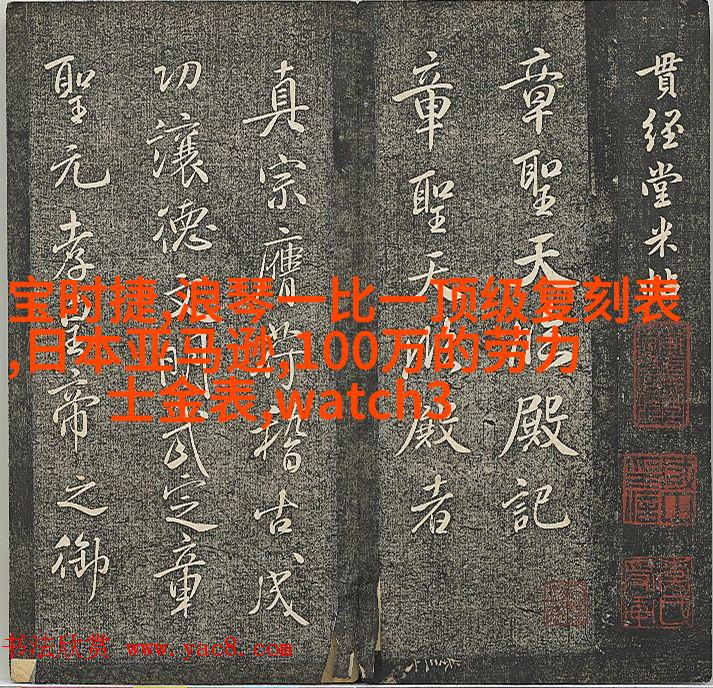 貫經堂米帖
章聖天臨殿記
章聖天臨殿者
真宗膺符稽古成
功讓德文明武定章
聖元孝皇帝之御
宝时捷,浪琴一比一顶级复刻表
,日本亚马逊,100万的劳力
士金表,watch3
书法欣赏 www.yac8.com